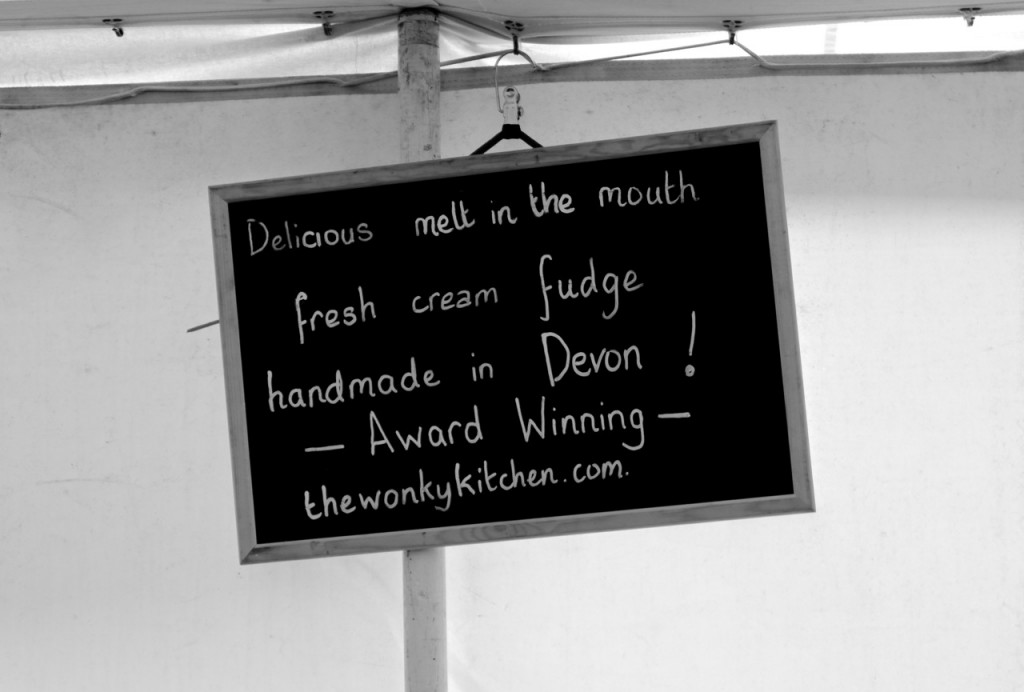 Delicious melt in the mouth
fresh cream fudge
handmade in Devon !
— Award Winning —
thewonkykitchen.com.